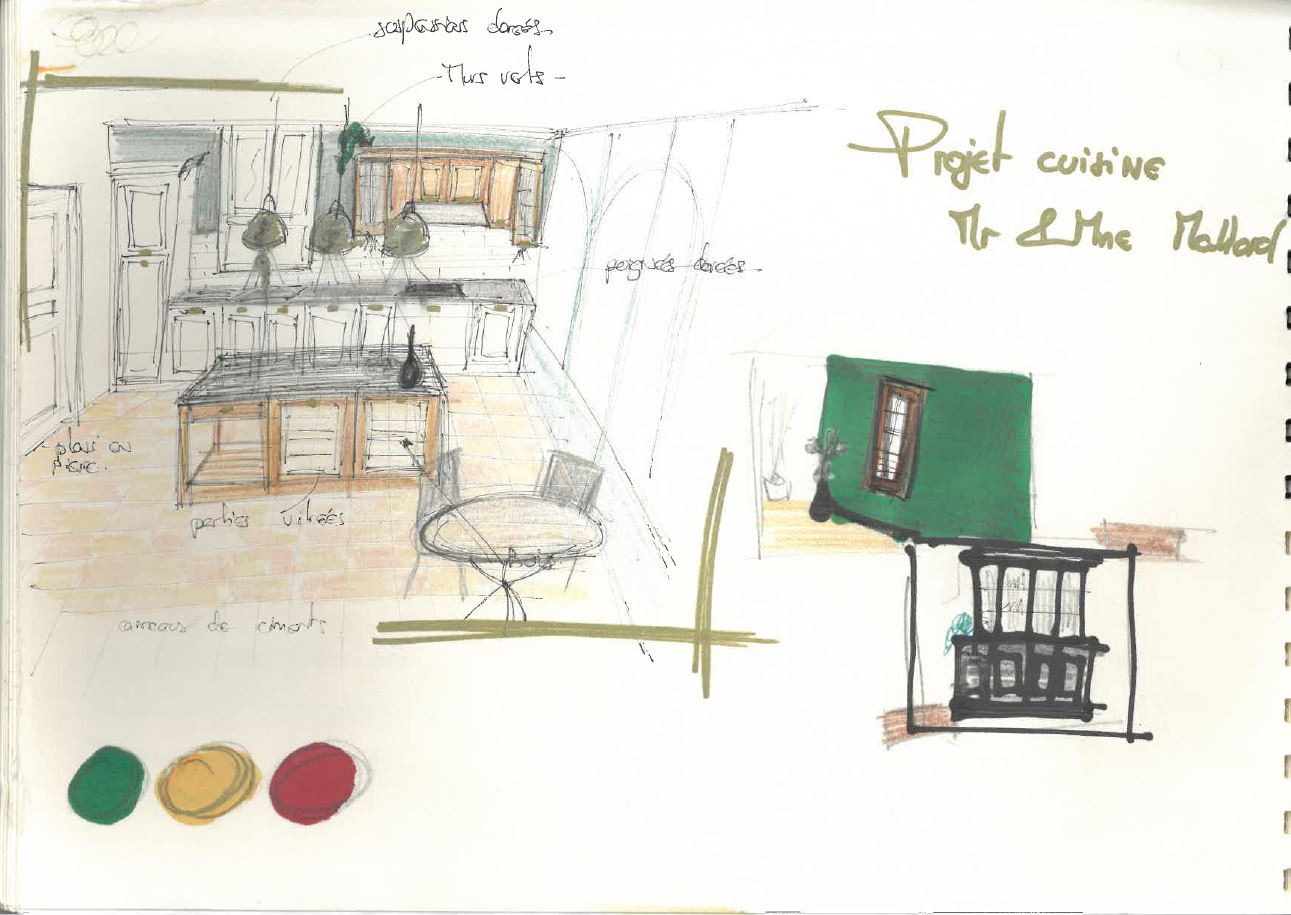 suspensions dorés
- Murs verts -
Projet cuisine
Mr & Mme Mallard
poignés dorées
- plan en
pierre.
parties vitrées
bois
carreaux de ciments